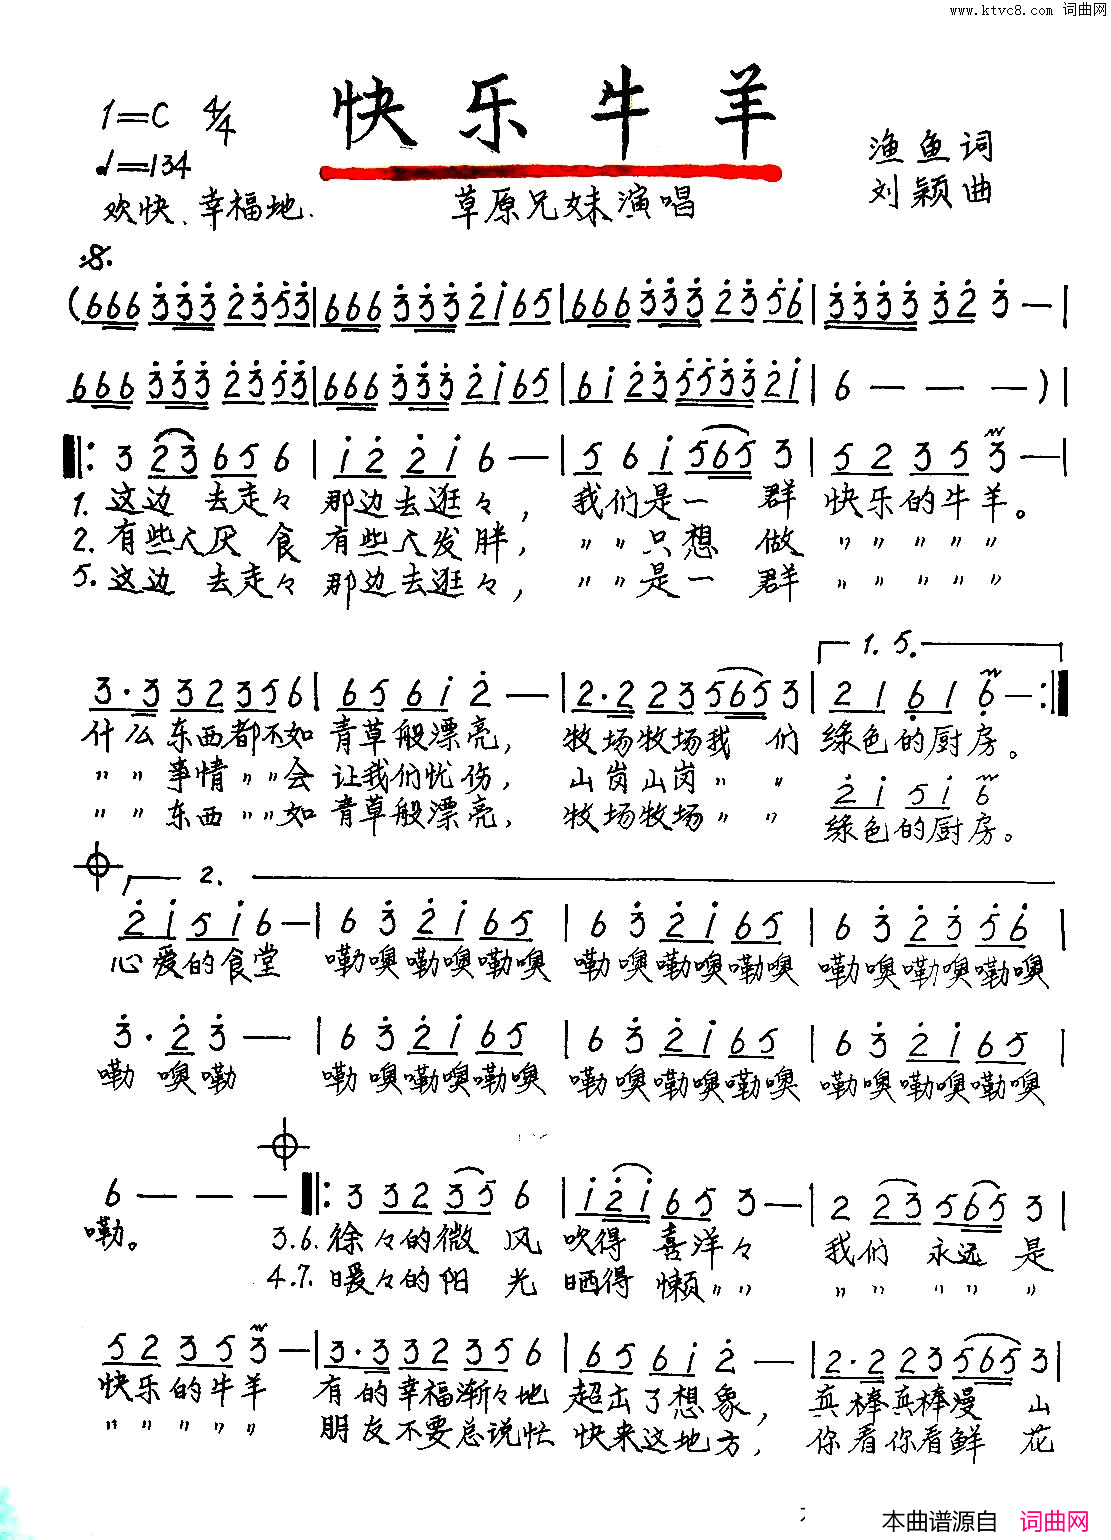 www.ktvc8.com 词曲网
快乐牛羊
1=C 4/4
♩=134
渔鱼词
刘颖曲
欢快、幸福地.
草原兄妹演唱
(666 333 23 53|666 333 21 65|666 333 23 56|3333 32 3 —|
666 333 23 53|666 333 21 65|61 23 5533 21|6 — — —)|
3 23 65 6|12 21 6 —|5 6 1 565 3|52 35 3 —|
1. 这边 去走々 那边去逛々, 我们是一 群 快乐的牛羊。
2. 有些人厌 食 有些人发胖, 〃 〃 只想 做 〃 〃 〃 〃 〃
5. 这边 去走々 那边去逛々, 〃 〃 是一 群 〃 〃 〃 〃 〃
1. 5.
3·3 32 35 6|65 61 2 —|2·2 23 565 3|21 61 6 —:|
什么东西都不如 青草般漂亮, 牧场牧场我 们 绿色的厨房。
〃 〃 事情 〃 〃 会 让我们忧伤, 山岗山岗 〃 〃
21 51 6
〃 〃 东西 〃 〃 如 青草般漂亮, 牧场牧场 〃 〃 绿色的厨房。
2.
21 51 6 —|6 3 21 65|6 3 21 65|6 3 23 56|
心爱的食堂 嘞噢嘞噢嘞噢 嘞噢嘞噢嘞噢 嘞噢嘞噢嘞噢
3· 2 3 —|6 3 21 65|6 3 21 65|6 3 21 65|
嘞 噢嘞 嘞噢嘞噢嘞噢 嘞噢嘞噢嘞噢 嘞噢嘞噢嘞噢
6 — — —|:3 32 35 6|121 65 3 —|2 23 565 3|
嘞。 3.6. 徐々的微 风 吹得 喜洋々 我们 永远 是
4.7. 暖々的阳 光 晒得 懒〃〃 〃 〃 〃 〃 〃
52 35 3 —|3·3 32 35 6|65 61 2 —|2·2 23 565 3|
快乐的牛羊 有的幸福渐々地 超出了想象, 真棒真棒漫 山
〃 〃 〃 〃 〃 朋友不要总说忙 快来这地方, 你看你看鲜 花
本曲谱源自 词曲网